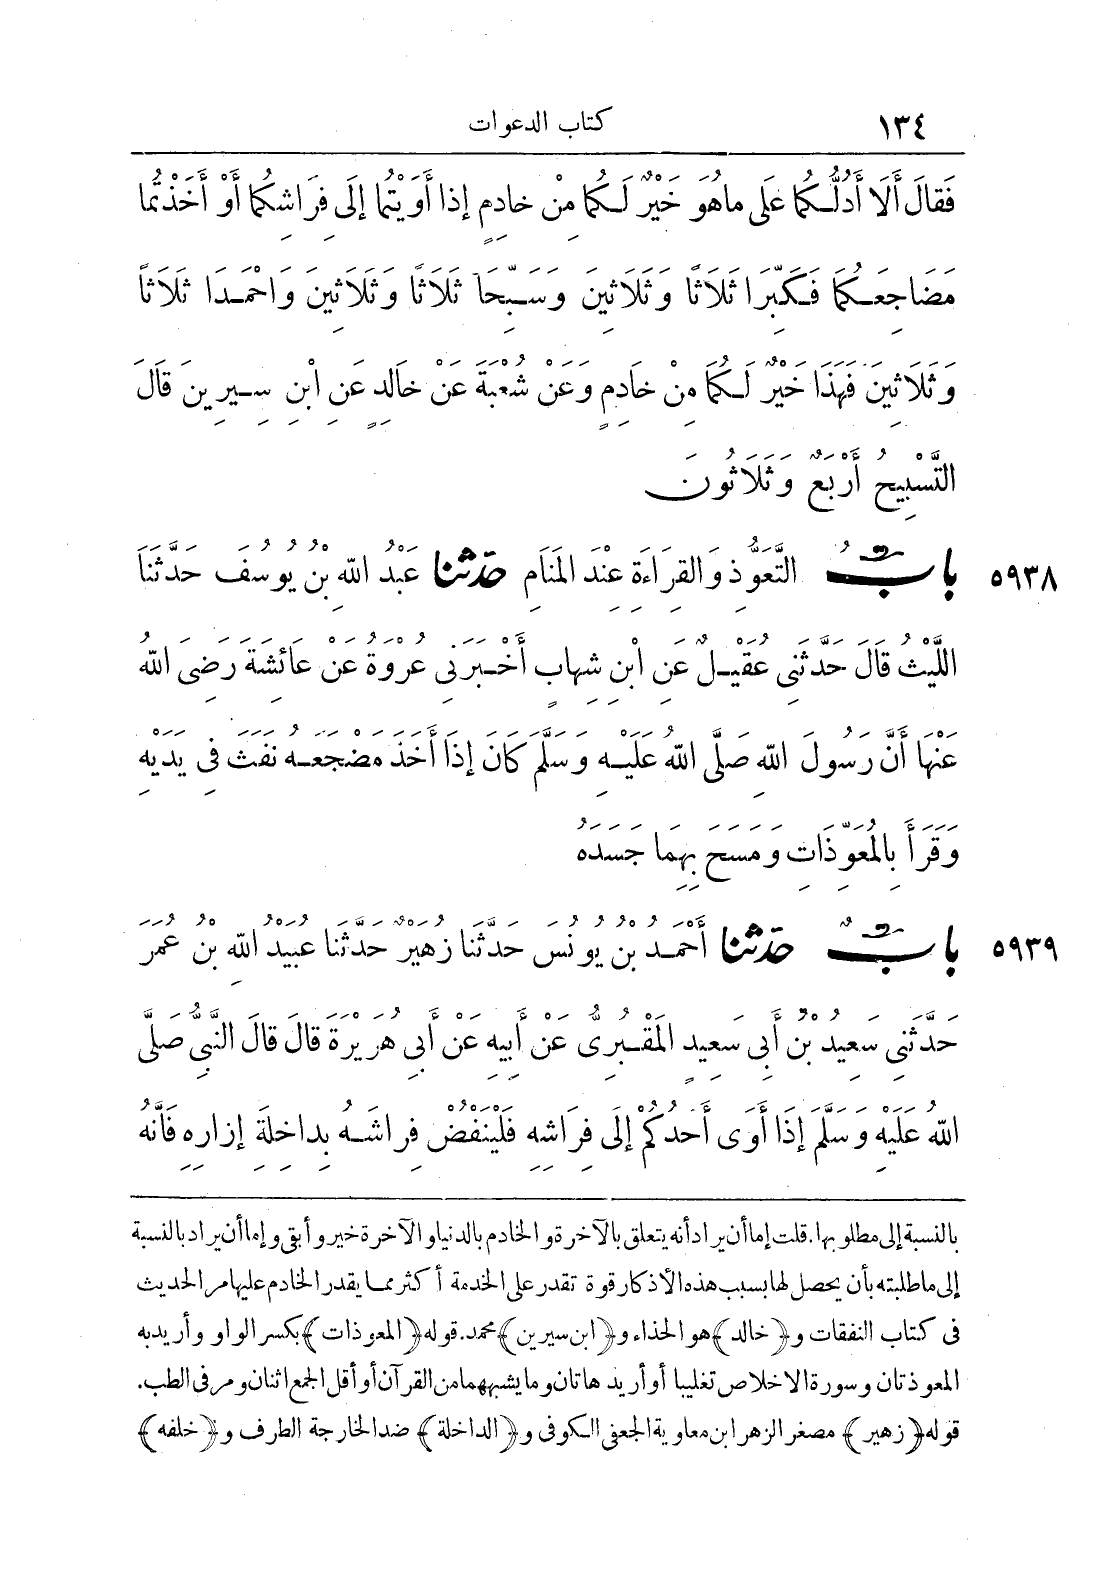 ١٣٤ كتاب الدعوات
فَقَالَ أَلَا أَدُلُّكُمَا عَلَى مَا هُوَ خَيْرٌ لَكُمَا مِنْ خَادِمٍ إِذَا أَوَيْتُمَا إِلَى فِرَاشِكُمَا أَوْ أَخَذْتُمَا
مَضَاجِعَكُمَا فَكَبِّرَا ثَلَاثًا وَثَلَاثِينَ وَسَبِّحَا ثَلَاثًا وَثَلَاثِينَ وَاحْمَدَا ثَلَاثًا
وَثَلَاثِينَ فَهَذَا خَيْرٌ لَكُمَا مِنْ خَادِمٍ وَعَنْ شُعْبَةَ عَنْ خَالِدٍ عَنِ ابْنِ سِيرِينَ قَالَ
التَّسْبِيحُ أَرْبَعٌ وَثَلَاثُونَ
٥٩٣٨ بابُ التَّعَوُّذِ وَالْقِرَاءَةِ عِنْدَ الْمَنَامِ حدثنا عَبْدُ اللَّهِ بْنُ يُوسُفَ حَدَّثَنَا
اللَّيْثُ قَالَ حَدَّثَنِي عُقَيْلٌ عَنِ ابْنِ شِهَابٍ أَخْبَرَنِي عُرْوَةُ عَنْ عَائِشَةَ رَضِيَ اللَّهُ
عَنْهَا أَنَّ رَسُولَ اللَّهِ صَلَّى اللَّهُ عَلَيْهِ وَسَلَّمَ كَانَ إِذَا أَخَذَ مَضْجَعَهُ نَفَثَ فِي يَدَيْهِ
وَقَرَأَ بِالْمُعَوِّذَاتِ وَمَسَحَ بِهِمَا جَسَدَهُ
٥٩٣٩ بابٌ حدثنا أَحْمَدُ بْنُ يُونُسَ حَدَّثَنَا زُهَيْرٌ حَدَّثَنَا عُبَيْدُ اللَّهِ بْنُ عُمَرَ
حَدَّثَنِي سَعِيدُ بْنُ أَبِي سَعِيدٍ الْمَقْبُرِيُّ عَنْ أَبِيهِ عَنْ أَبِي هُرَيْرَةَ قَالَ قَالَ النَّبِيُّ صَلَّى
اللَّهُ عَلَيْهِ وَسَلَّمَ إِذَا أَوَى أَحَدُكُمْ إِلَى فِرَاشِهِ فَلْيَنْفُضْ فِرَاشَهُ بِدَاخِلَةِ إِزَارِهِ فَإِنَّهُ
بالنسبة إلى مطلوبها. قلت إما أن يراد أنه يتعلق بالآخرة والخادم بالدنيا والآخرة خير وأبقى وإما أن يراد بالنسبة
إلى ما طلبته بأن يحصل لها بسبب هذه الأذكار قوة تقدر على الخدمة أكثر مما يقدر الخادم عليها مر الحديث
فى كتاب النفقات و﴿خالد﴾ هو الحذاء و﴿ابن سيرين﴾ محمد. قوله ﴿المعوذات﴾ بكسر الواو وأريد به
المعوذتان وسورة الاخلاص تغليبا أو أريد هاتان وما يشبههما من القرآن أو أقل الجمع اثنان ومر فى الطب.
قوله ﴿زهير﴾ مصغر الزهر ابن معاوية الجعفى الكوفى و﴿الداخلة﴾ ضد الخارجة الطرف و﴿خلفه﴾